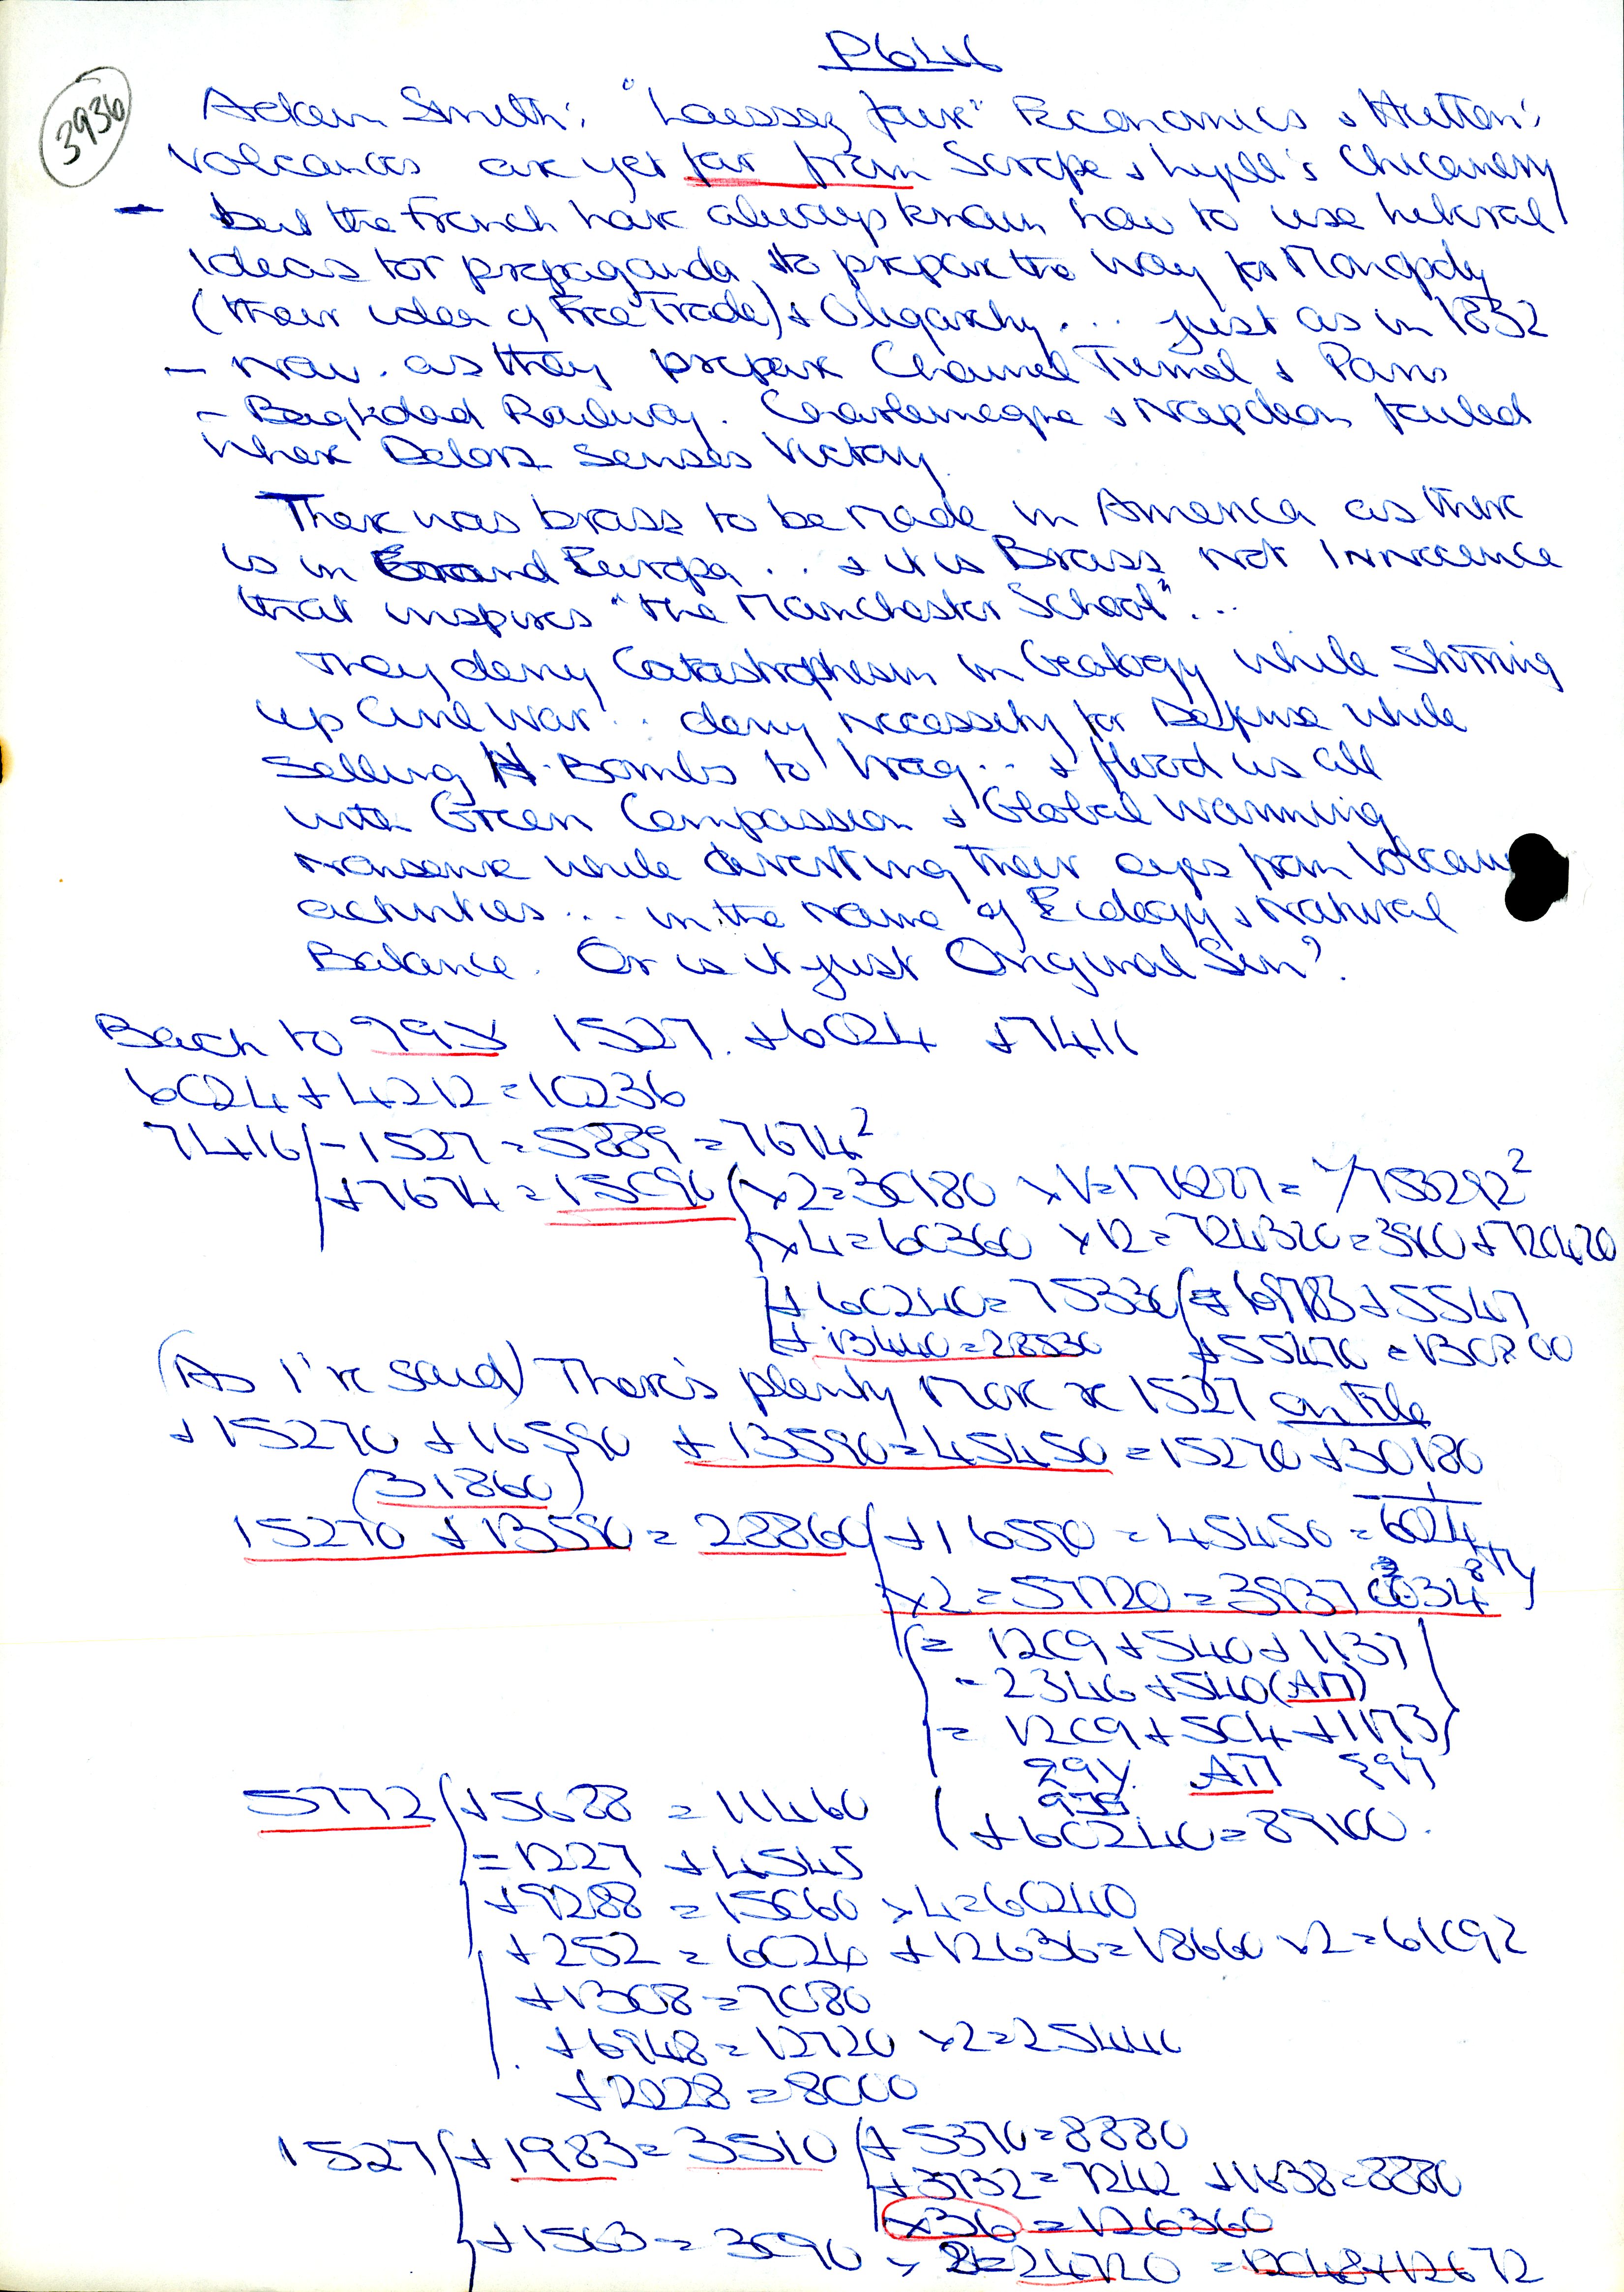 P646
3936
Adam Smith: "Laissez faire" Economics & Hutton's
Volcanoes are yet far from Scrope & Lyell's Chicanery
- but the French have always known how to use Liberal
ideas for propaganda to prepare the way for Monopoly
(their idea of Free Trade) & Oligarchy... just as in 1832
- Now. as they prepare Channel Tunnel & Paris
- Baghdad Railway. Charlemagne & Napoleon failed
where Delors senses Victory
There was brass to be made in America as there
is in Europe.. & it is Brass not Innocence
that inspires "the Manchester School"...
They deny Catastrophism in Geology while stirring
up Civil War... deny necessity for Defense while
selling H-Bombs to Iraq... & flood us all
with Green Compassion & Global Warming
nonsense while averting their eyes from Volcanic
activities... in the name of Ecology & Natural
Balance. Or is it just Original Sin?
Back to 1527. +6024 +7416
6024+4212=10236
7416 -1527=5889=7674²
+7674=15090 x2=30180
x4=60360 x12=724320=3900+720420
+60240=75330 = 69783+5547
+13440=28530 +55470=130800
(As I've said) There's plenty more re 1527 on File
+15270 +16590 +13590=45450=15270+30180
(31860)
15270+13590=28860 +16590=45450=6024
x2=57720=3937
= 1209+540+1137
= 2346+540(AM)
= 1209+504+1173
AM
5772 +5688=11460 +60240=89100.
=1227+4545
+9288=15060 x4=60240
+252=6024 +12636=18660 x2=61092
+1308=7080
+6948=12720 x2=25440
+2228=8000
1527 +1983=3510 +5370=8880
+3732=7242 +1638=8880
x36=126360
+1563=3090 x 8=24720 =12048+12672